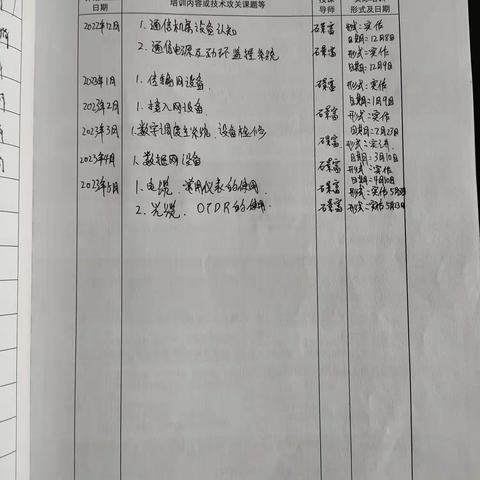 日期 培训内容或技术攻关课题等 导师 形式及日期
2022年12月 1.通信机房设备认知 石荣富 形式:实作
日期:12月8日
2.通信电源及动环监控系统 石荣富 形式:实作
日期:12月9日
2023年1月 1.传输网设备 石荣富 形式:实作
日期:1月9日
2023年2月 1.接入网设备 石荣富 形式:实作
日期:2月27日
2023年3月 1.数字调度主系统、设备检修 石荣富 形式:实作
日期:3月10日
2023年4月 1.数据网设备 石荣富 形式:实作
日期:4月10日
2023年5月 1.电缆、常用仪表的使用 石荣富 形式:实作
2.光缆、OTDR的使用 石荣富 形式:实作 5月13日